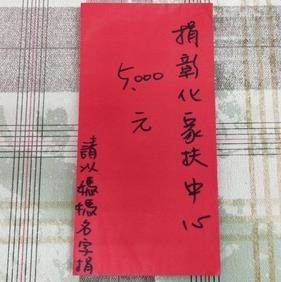 捐彰化家扶中心
5,000元
請以媽媽名字捐